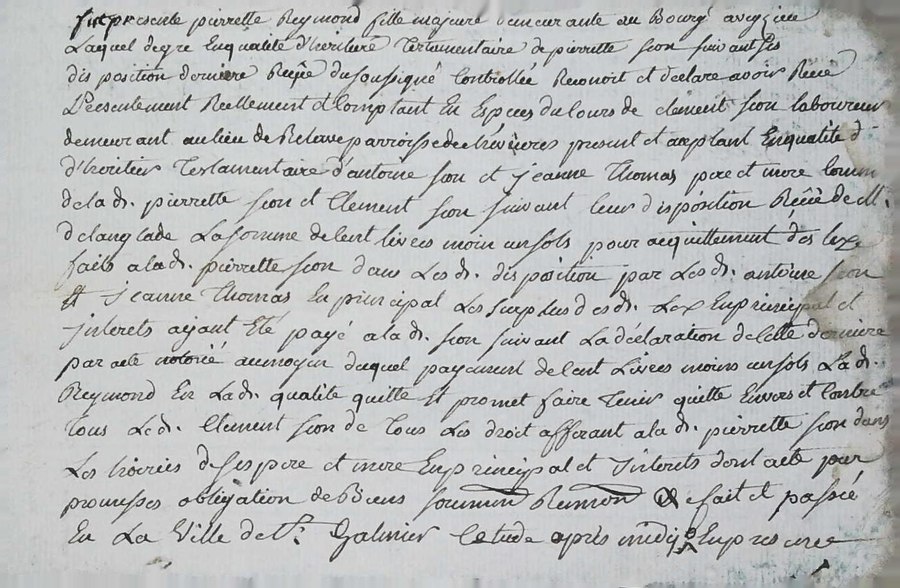 fut presente pierrette Reymond fille majeure demeurante au Bourg
Laquel degre En qualité d'héritiere Testamentaire de pierrette sion suivant ses
disposition derniere Reçüe du soussigné Controllée Reconoit et declare avoir Recu
Présentement Réellement et Comptant En Espèces du Cours de clement sion laboureur
demeurant au lieu de parroisse de présent et acceptant En qualité d
d'héritier Testamentaire d'antoine sion et jeanne Thomas pere et mere Comm
de la de. pierrette sion et Clement sion suivant leur disposition Reçüe de Mt.
delanglade La somme de Cent livres moin un sols pour acquittement des legs
faits a la de. pierrette sion dans Les de. disposition par Les de. antoine sion
Et jeanne Thomas En principal Les surplus des de. Legs En principal et
jnterets ajant Eté payé a la de. sion suivant La déclaration de Cette derniere
par acte au moyen duquel payement de Cent Livres moins un sols La de.
Reymond En La de. qualité quitte Et promet faire Tenir quitte Envers et Contre
Tous Le de. Clement sion de Tous Les droit afferant a la de. pierrette sion dans
Les hoiries de ses pere et mere En principal et jnterets dont acte par
promesses obligation de Biens soumm Renon & fait et passé
En La Ville de St. Galmier Etude après midy En presence